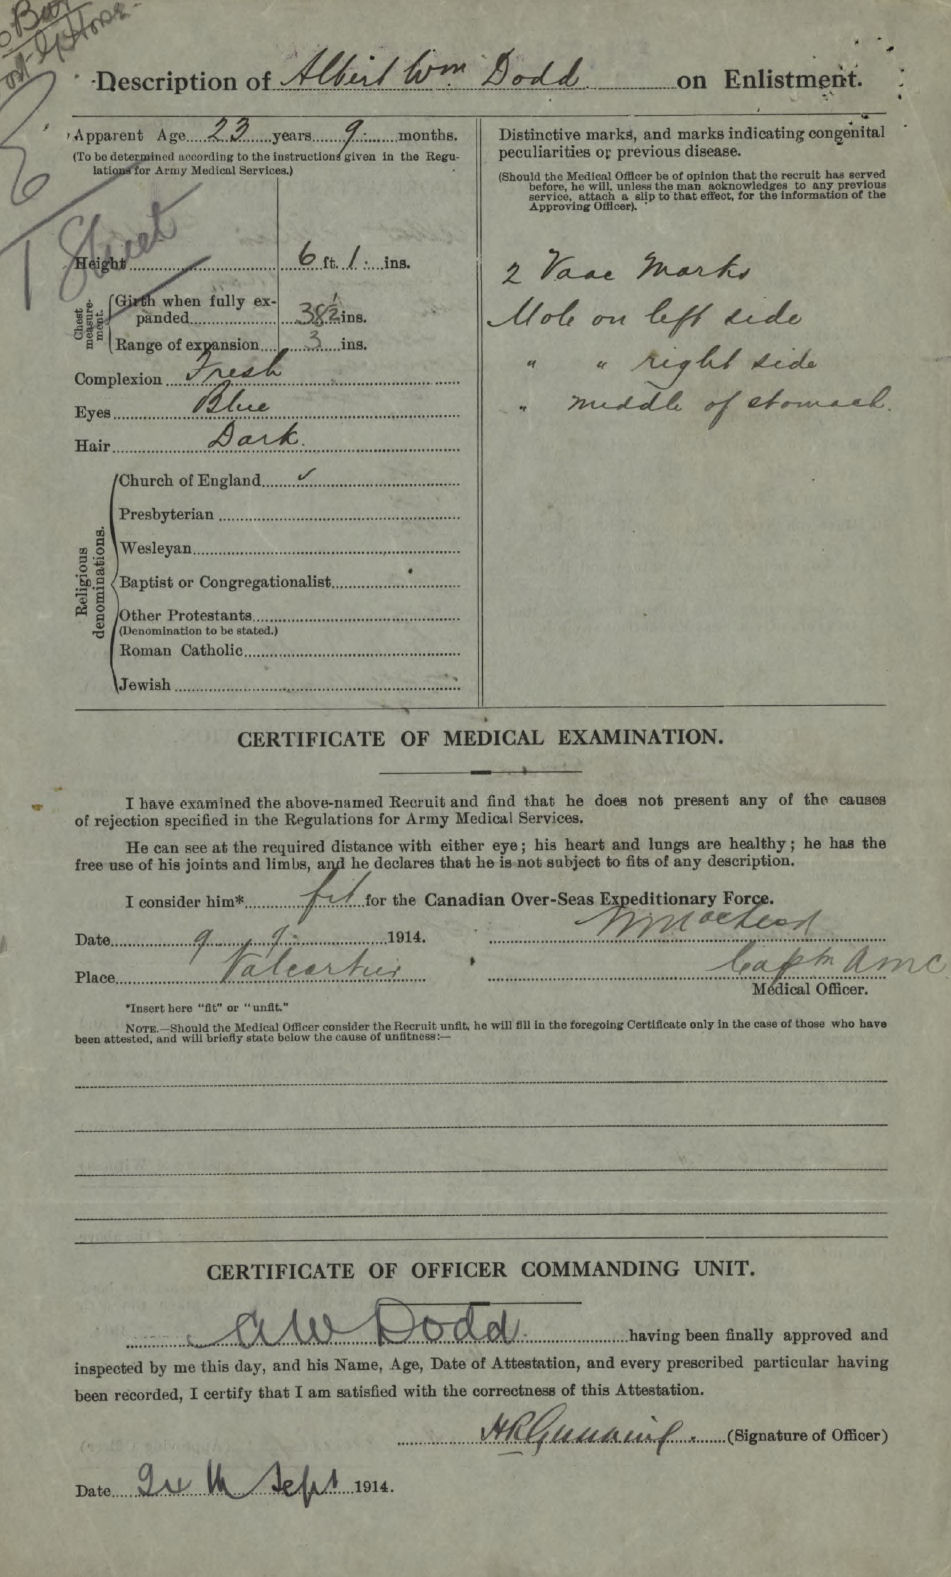 Description of Albert Wm Dodd on Enlistment.
Apparent Age 23 years 9 months.
(To be determined according to the instructions given in the Regu-
lations for Army Medical Services.)
Sheet
Height 6 ft. 1 ins.
Chest measure-ment.
Girth when fully ex-
panded 38½ ins.
Range of expansion 3 ins.
Complexion Fresh
Eyes Blue
Hair Dark.
Religious denominations.
Church of England ✓
Presbyterian
Wesleyan
Baptist or Congregationalist
Other Protestants
(Denomination to be stated.)
Roman Catholic
Jewish
Distinctive marks, and marks indicating congenital
peculiarities or previous disease.
(Should the Medical Officer be of opinion that the recruit has served
before, he will, unless the man acknowledges to any previous
service, attach a slip to that effect, for the information of the
Approving Officer).
2 Vacc Marks
Mole on left side
" " right side
" middle of stomach.
CERTIFICATE OF MEDICAL EXAMINATION.
I have examined the above-named Recruit and find that he does not present any of the causes
of rejection specified in the Regulations for Army Medical Services.
He can see at the required distance with either eye; his heart and lungs are healthy; he has the
free use of his joints and limbs, and he declares that he is not subject to fits of any description.
I consider him* fit for the Canadian Over-Seas Expeditionary Force.
Date 9 9 1914.
Place Valcartier
Captn AMC
Medical Officer.
*Insert here "fit" or "unfit."
NOTE.—Should the Medical Officer consider the Recruit unfit, he will fill in the foregoing Certificate only in the case of those who have
been attested, and will briefly state below the cause of unfitness:—
CERTIFICATE OF OFFICER COMMANDING UNIT.
A W Dodd having been finally approved and
inspected by me this day, and his Name, Age, Date of Attestation, and every prescribed particular having
been recorded, I certify that I am satisfied with the correctness of this Attestation.
(Signature of Officer)
Date Sept 1914.